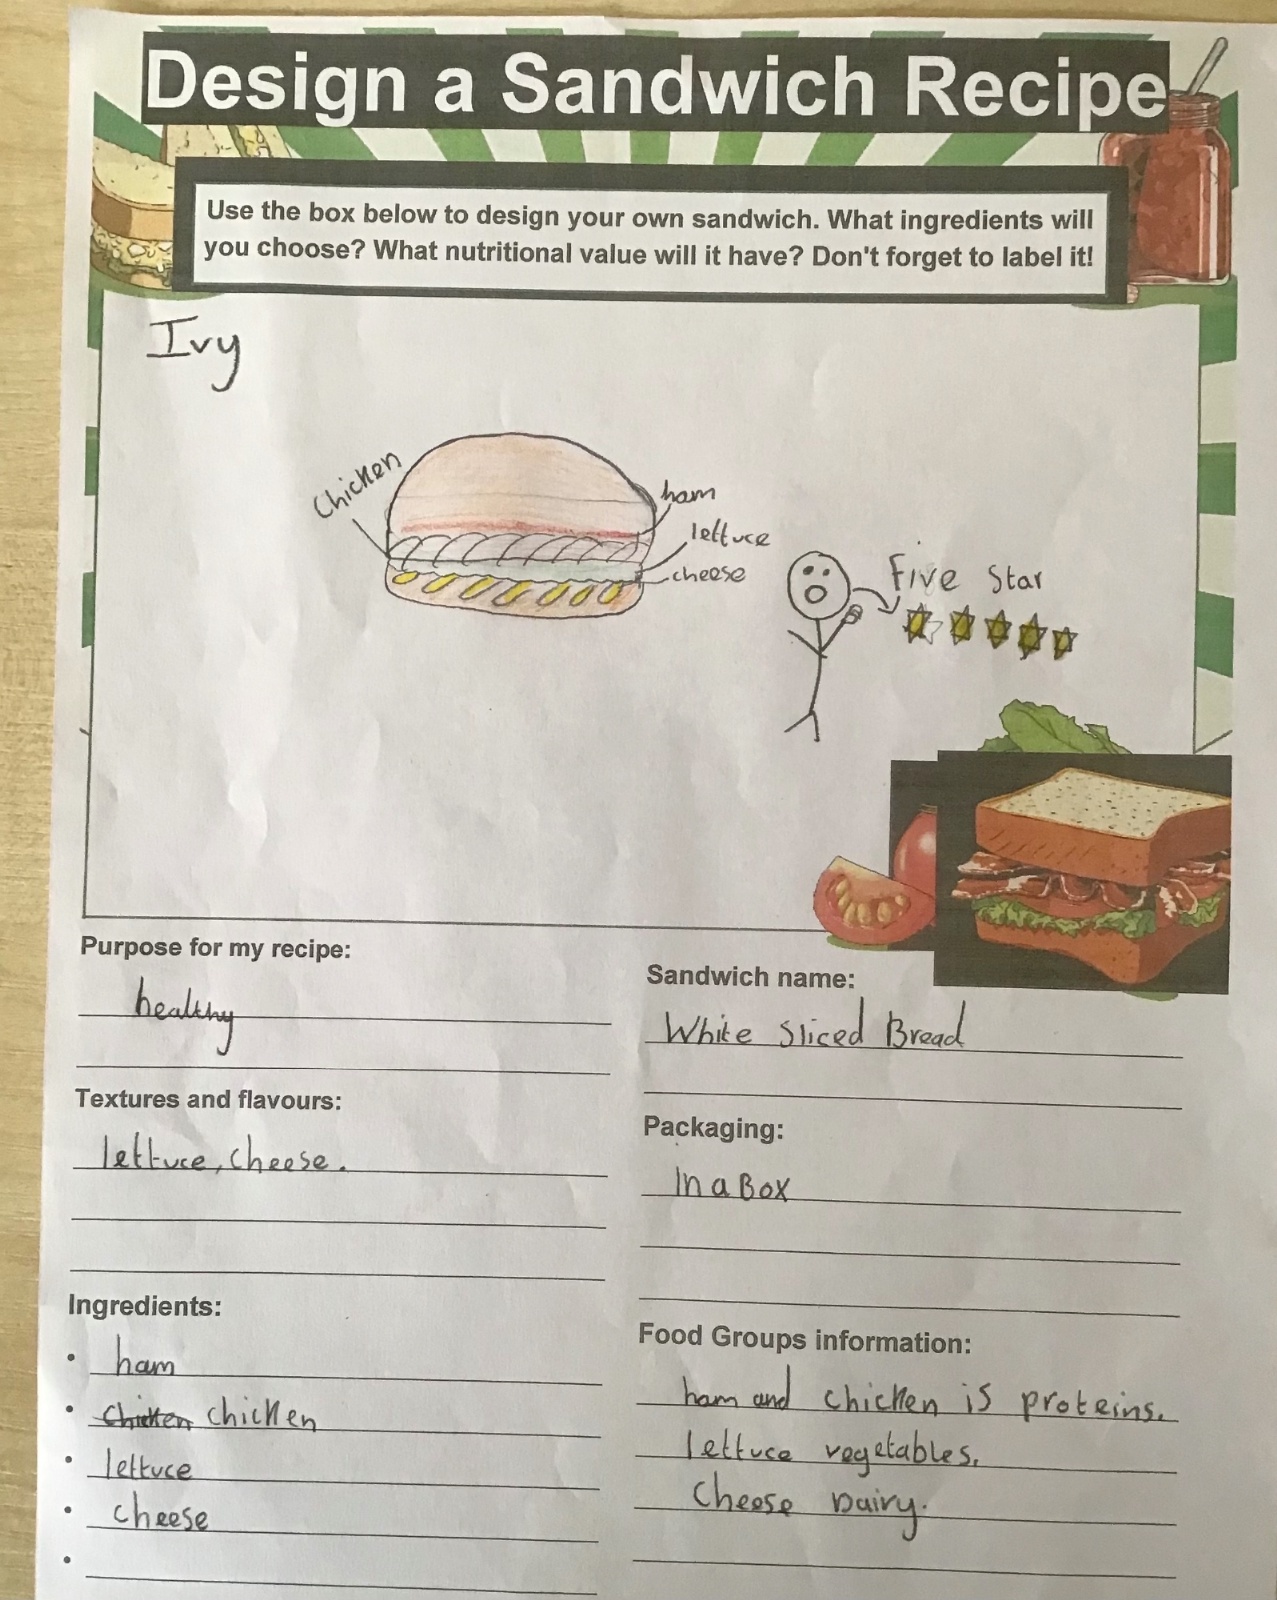 Design a Sandwich Recipe
Use the box below to design your own sandwich. What ingredients will
you choose? What nutritional value will it have? Don't forget to label it!
Ivy
Chicken
ham
lettuce
cheese
Five Star
Purpose for my recipe:
healthy
Textures and flavours:
lettuce, cheese.
Ingredients:
• ham
• chicken chicken
• lettuce
• cheese
•
Sandwich name:
White Sliced Bread
Packaging:
In a Box
Food Groups information:
ham and chicken is proteins.
lettuce vegetables.
Cheese Dairy.